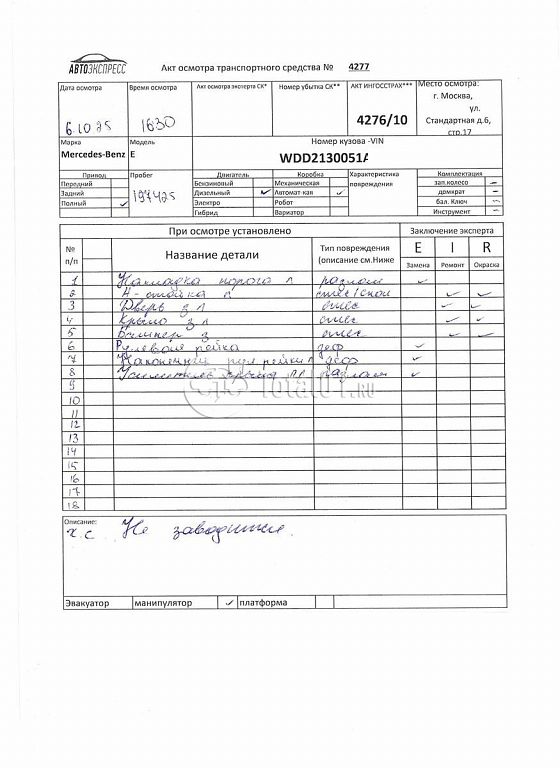 АВТОЭКСПРЕСС
Акт осмотра транспортного средства № 4277
Дата осмотра
6.10.25
Время осмотра
1630
Акт осмотра эксперта СК*
Номер убытка СК**
АКТ ИНГОССТРАХ***
4276/10
Место осмотра:
г. Москва,
ул.
Стандартная д.6,
стр.17
Марка
Mercedes-Benz
Модель
E
Номер кузова -VIN
WDD2130051A
Привод
Передний
Задний
Полный ✓
Пробег
197425
Двигатель
Бензиновый
Дизельный ✓
Электро
Гибрид
Коробка
Механическая
Автомат-кая ✓
Робот
Вариатор
Характеристика
повреждения
Комплектация
зап.колесо –
домкрат –
бал. Ключ ✓
Инструмент –
При осмотре установлено
Заключение эксперта
№
п/п
Название детали
Тип повреждения
(описание см.Ниже
E I R
Замена Ремонт Окраска
1 Накладка порога л разлом ✓
2 А-стойка л ✓ ✓
3 Дверь з л ✓ ✓
4 Крыло з л ✓ ✓
5 Бампер з ✓ ✓
6 Рулевая рейка деф ✓
7 Наконечник рул рейки л деф ✓
8 Усилитель разлом ✓
9
10
11
12
13
14
15
16
17
18
Total01.RU
Описание:
х.с Не заводится.
Эвакуатор манипулятор ✓ платформа